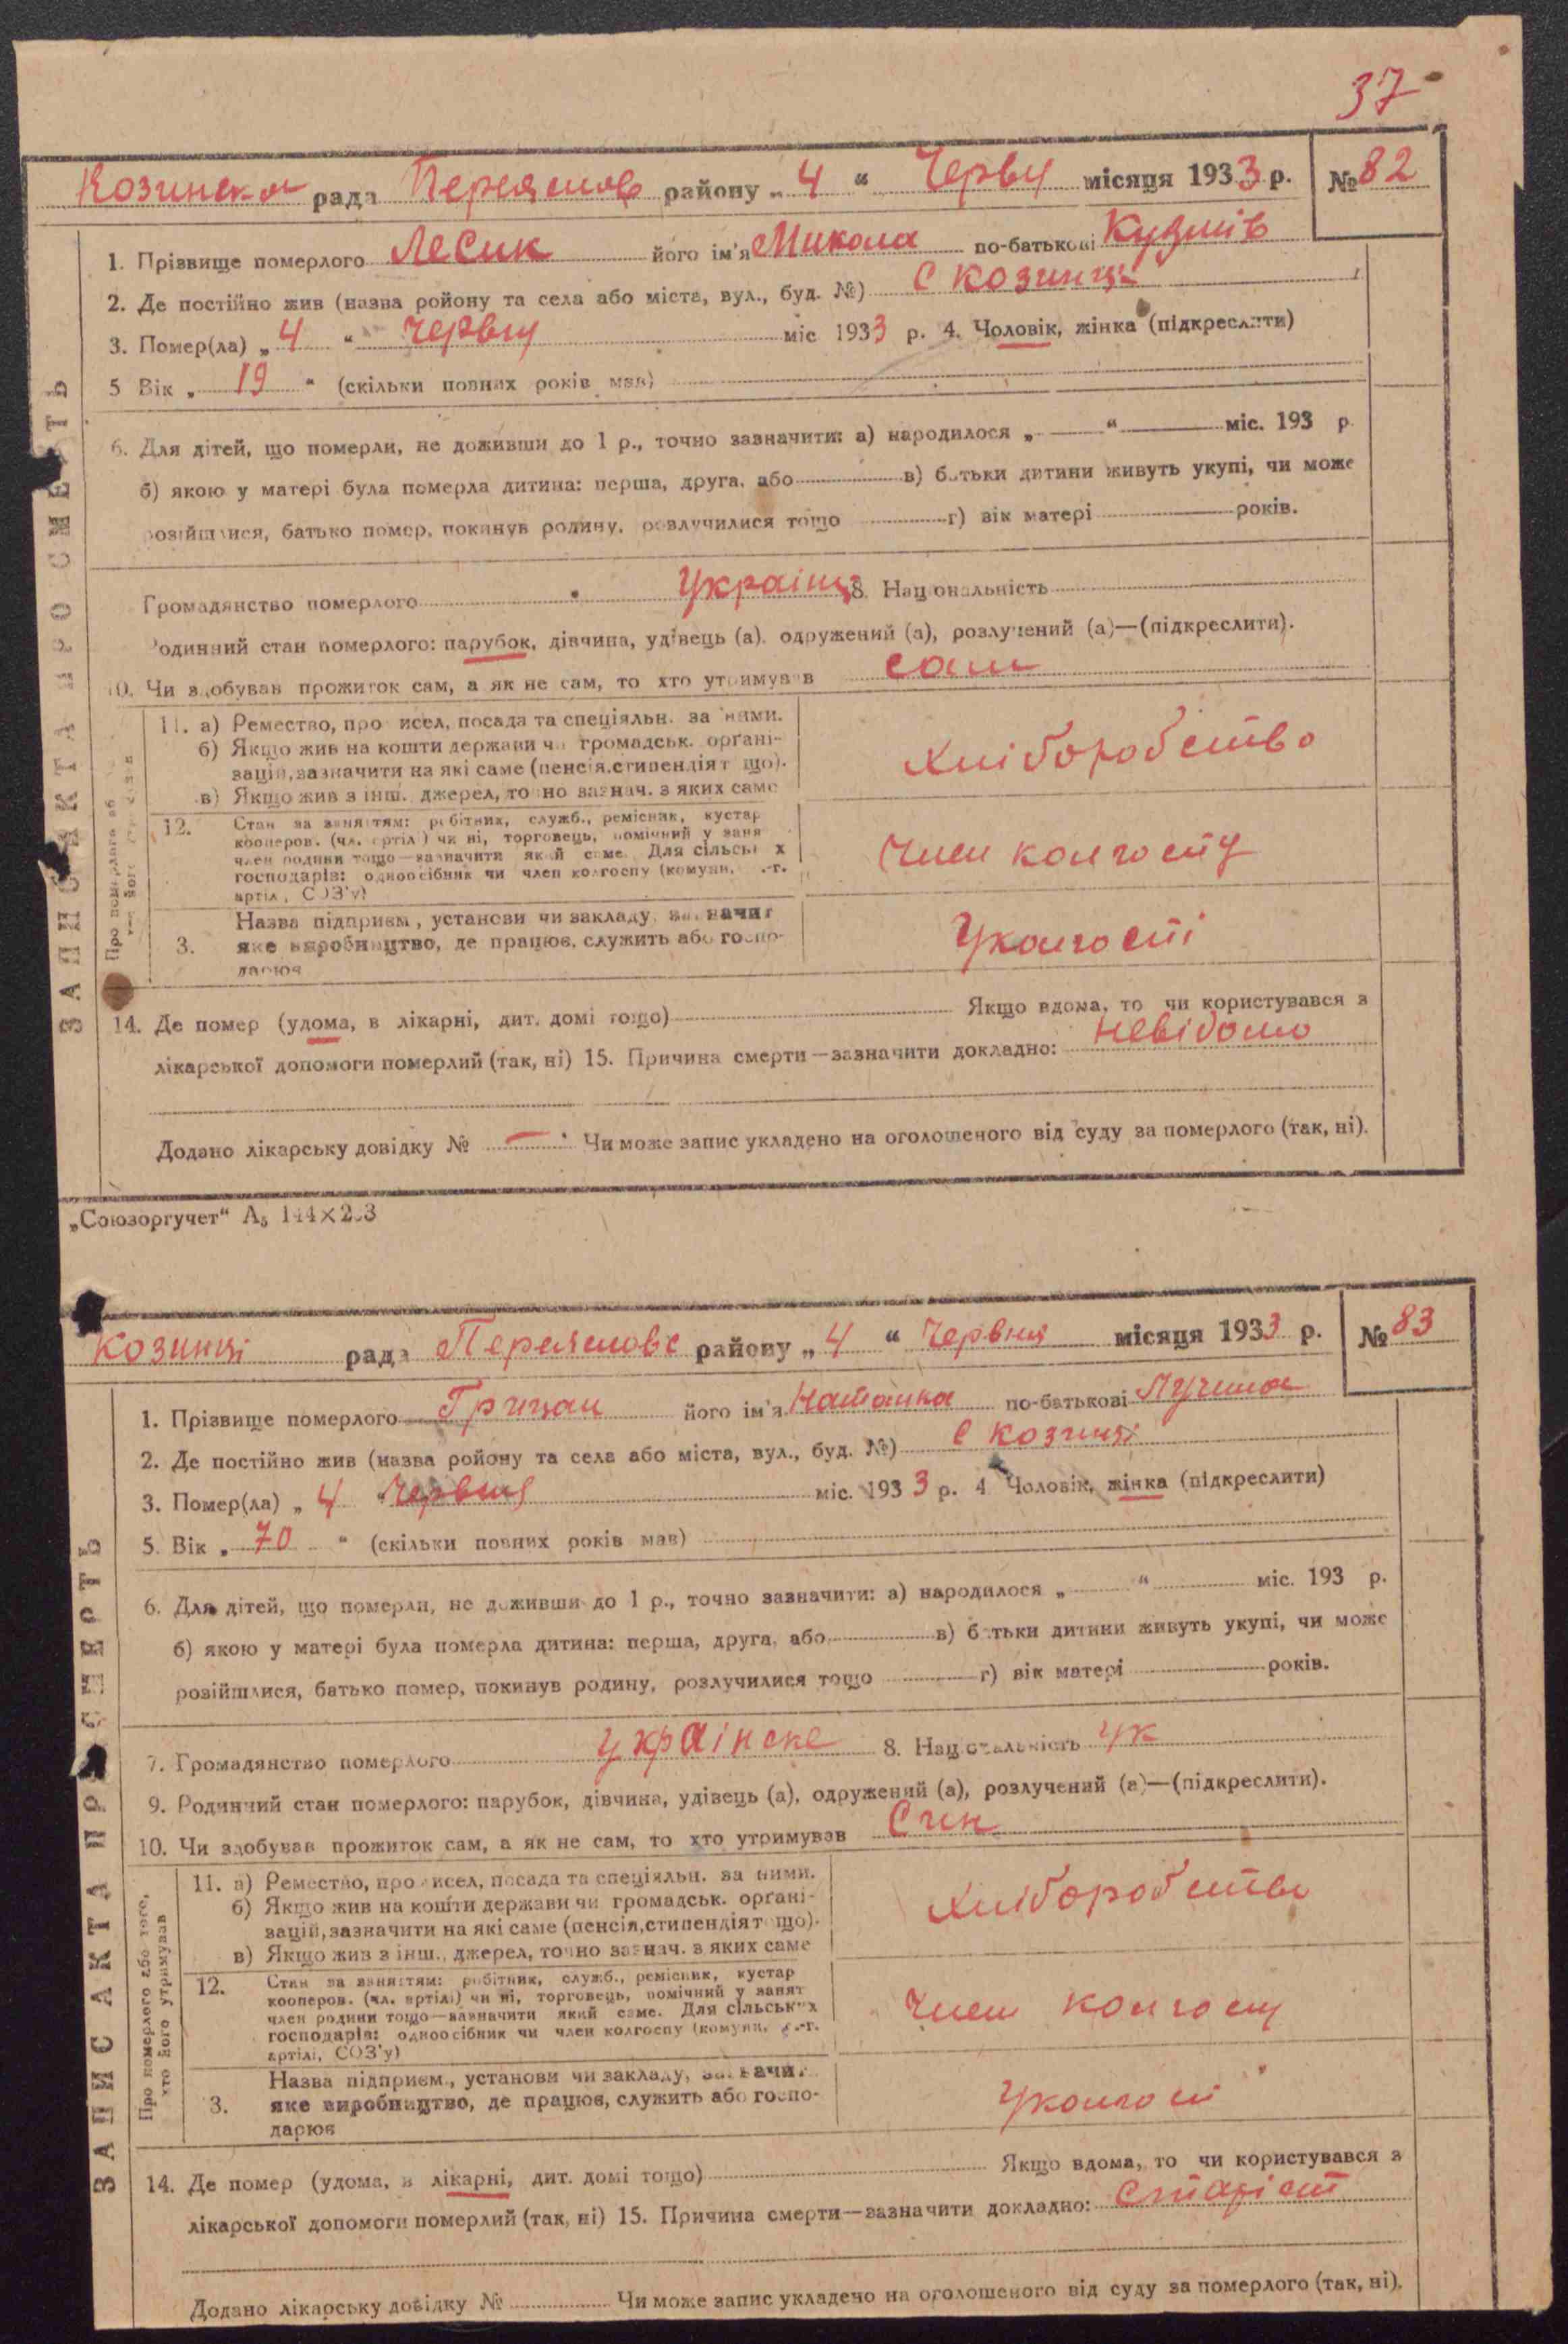 37
Козинска рада Переяслов району „ 4 “ Черву місяця 1933 р. № 82
ЗАПИС АКТА ПРО СМЕРТЬ
1. Прізвище померлого Лесик його ім'я Микола по-батькові Кузмів
2. Де постійно жив (назва ройону та села або міста, вул., буд. №) С Козинці
3. Помер(ла) „ 4 “ Черву міс 1933 р. 4. Чоловік, жінка (підкреслити)
5 Вік „ 19 “ (скільки повних років мав)
6. Для дітей, що померли, не доживши до 1 р., точно зазначити: а) народилося „ “ міс. 193 р.
б) якою у матері була померла дитина: перша, друга, або в) батьки дитини живуть укупі, чи може
розійшлися, батько помер, покинув родину, розлучилися тощо г) вік матері років.
Громадянство померлого Украінц 8. Національність
Родинний стан померлого: парубок, дівчина, удівець (а). одружений (а), розлучений (а)—(підкреслити).
10. Чи здобував прожиток сам, а як не сам, то хто утримував сам
Про померлого або
11. а) Ремество, промисел, посада та спеціяльн. за ними.
б) Якщо жив на кошти держави чи громадськ. орґані-
зацій, зазначити на які саме (пенсія, стипендія т що).
в) Якщо жив з інш. джерел, точно зазнач. з яких саме
Хліборобство
12. Стан за заняттям: робітник, служб., ремісник, кустар
кооперов. (чл. артілі) чи ні, торговець, помічний у занят
член родини тощо—зазначити який саме. Для сільськ х
господарів: одноосібник чи член колгоспу (комуни, с.-г.
артіл, СОЗ'у)
Член колгоспу
3. Назва підприєм, установи чи закладу, зазначит
яке виробництво, де працює, служить або госпо-
дарює
Уколгоспі
14. Де помер (удома, в лікарні, дит. домі тощо) Якщо вдома, то чи користувався з
лікарської допомоги померлий (так, ні) 15. Причина смерти—зазначити докладно: невідомо
Додано лікарську довідку № — Чи може запис укладено на оголошеного від суду за померлого (так, ні).
„Союзоргучет“ А₅ 144×2 3
Козинці рада Переяслове району „ 4 “ Червня місяця 1933 р. № 83
ЗАПИС АКТА ПРО СМЕРТЬ
1. Прізвище померлого Грицан його ім'я Наталка по-батькові
2. Де постійно жив (назва ройону та села або міста, вул., буд. №) С Козинці
3. Помер(ла) „ 4 “ Червня міс. 1933 р. 4 Чоловік, жінка (підкреслити)
5. Вік „ 70 “ (скільки повних років мав)
6. Для дітей, що померли, не доживши до 1 р., точно зазначити: а) народилося „ “ міс. 193 р.
б) якою у матері була померла дитина: перша, друга, або в) батьки дитини живуть укупі, чи може
розійшлися, батько помер, покинув родину, розлучилися тощо г) вік матері років.
7. Громадянство померлого українске 8. Національність ук
9. Родинний стан померлого: парубок, дівчина, удівець (а), одружений (а), розлучений (а)—(підкреслити).
10. Чи здобував прожиток сам, а як не сам, то хто утримував Син
Про померлого або того,
хто його утримував
11. а) Ремество, промисел, посада та спеціяльн. за ними.
б) Якщо жив на кошти держави чи громадськ. орґані-
зацій, зазначити на які саме (пенсія, стипендія т що).
в) Якщо жив з інш., джерел, точно зазнач. з яких саме
Хліборобство
12. Стан за заняттям: робітник, служб., ремісник, кустар
кооперов. (чл. артілі) чи ні, торговець, помічний у занят
член родини тощо—зазначити який саме. Для сільських
господарів: одноосібник чи член колгоспу (комуни, с.-г.
артілі, СОЗ'у)
Член колгоспу
3. Назва підприєм., установи чи закладу, зазначит
яке виробництво, де працює, служить або госпо-
дарює
Уколгосп
14. Де помер (удома, в лікарні, дит. домі тощо) Якщо вдома, то чи користувався з
лікарської допомоги померлий (так, ні) 15. Причина смерти—зазначити докладно: Старіст
Додано лікарську довідку № Чи може запис укладено на оголошеного від суду за померлого (так, ні).